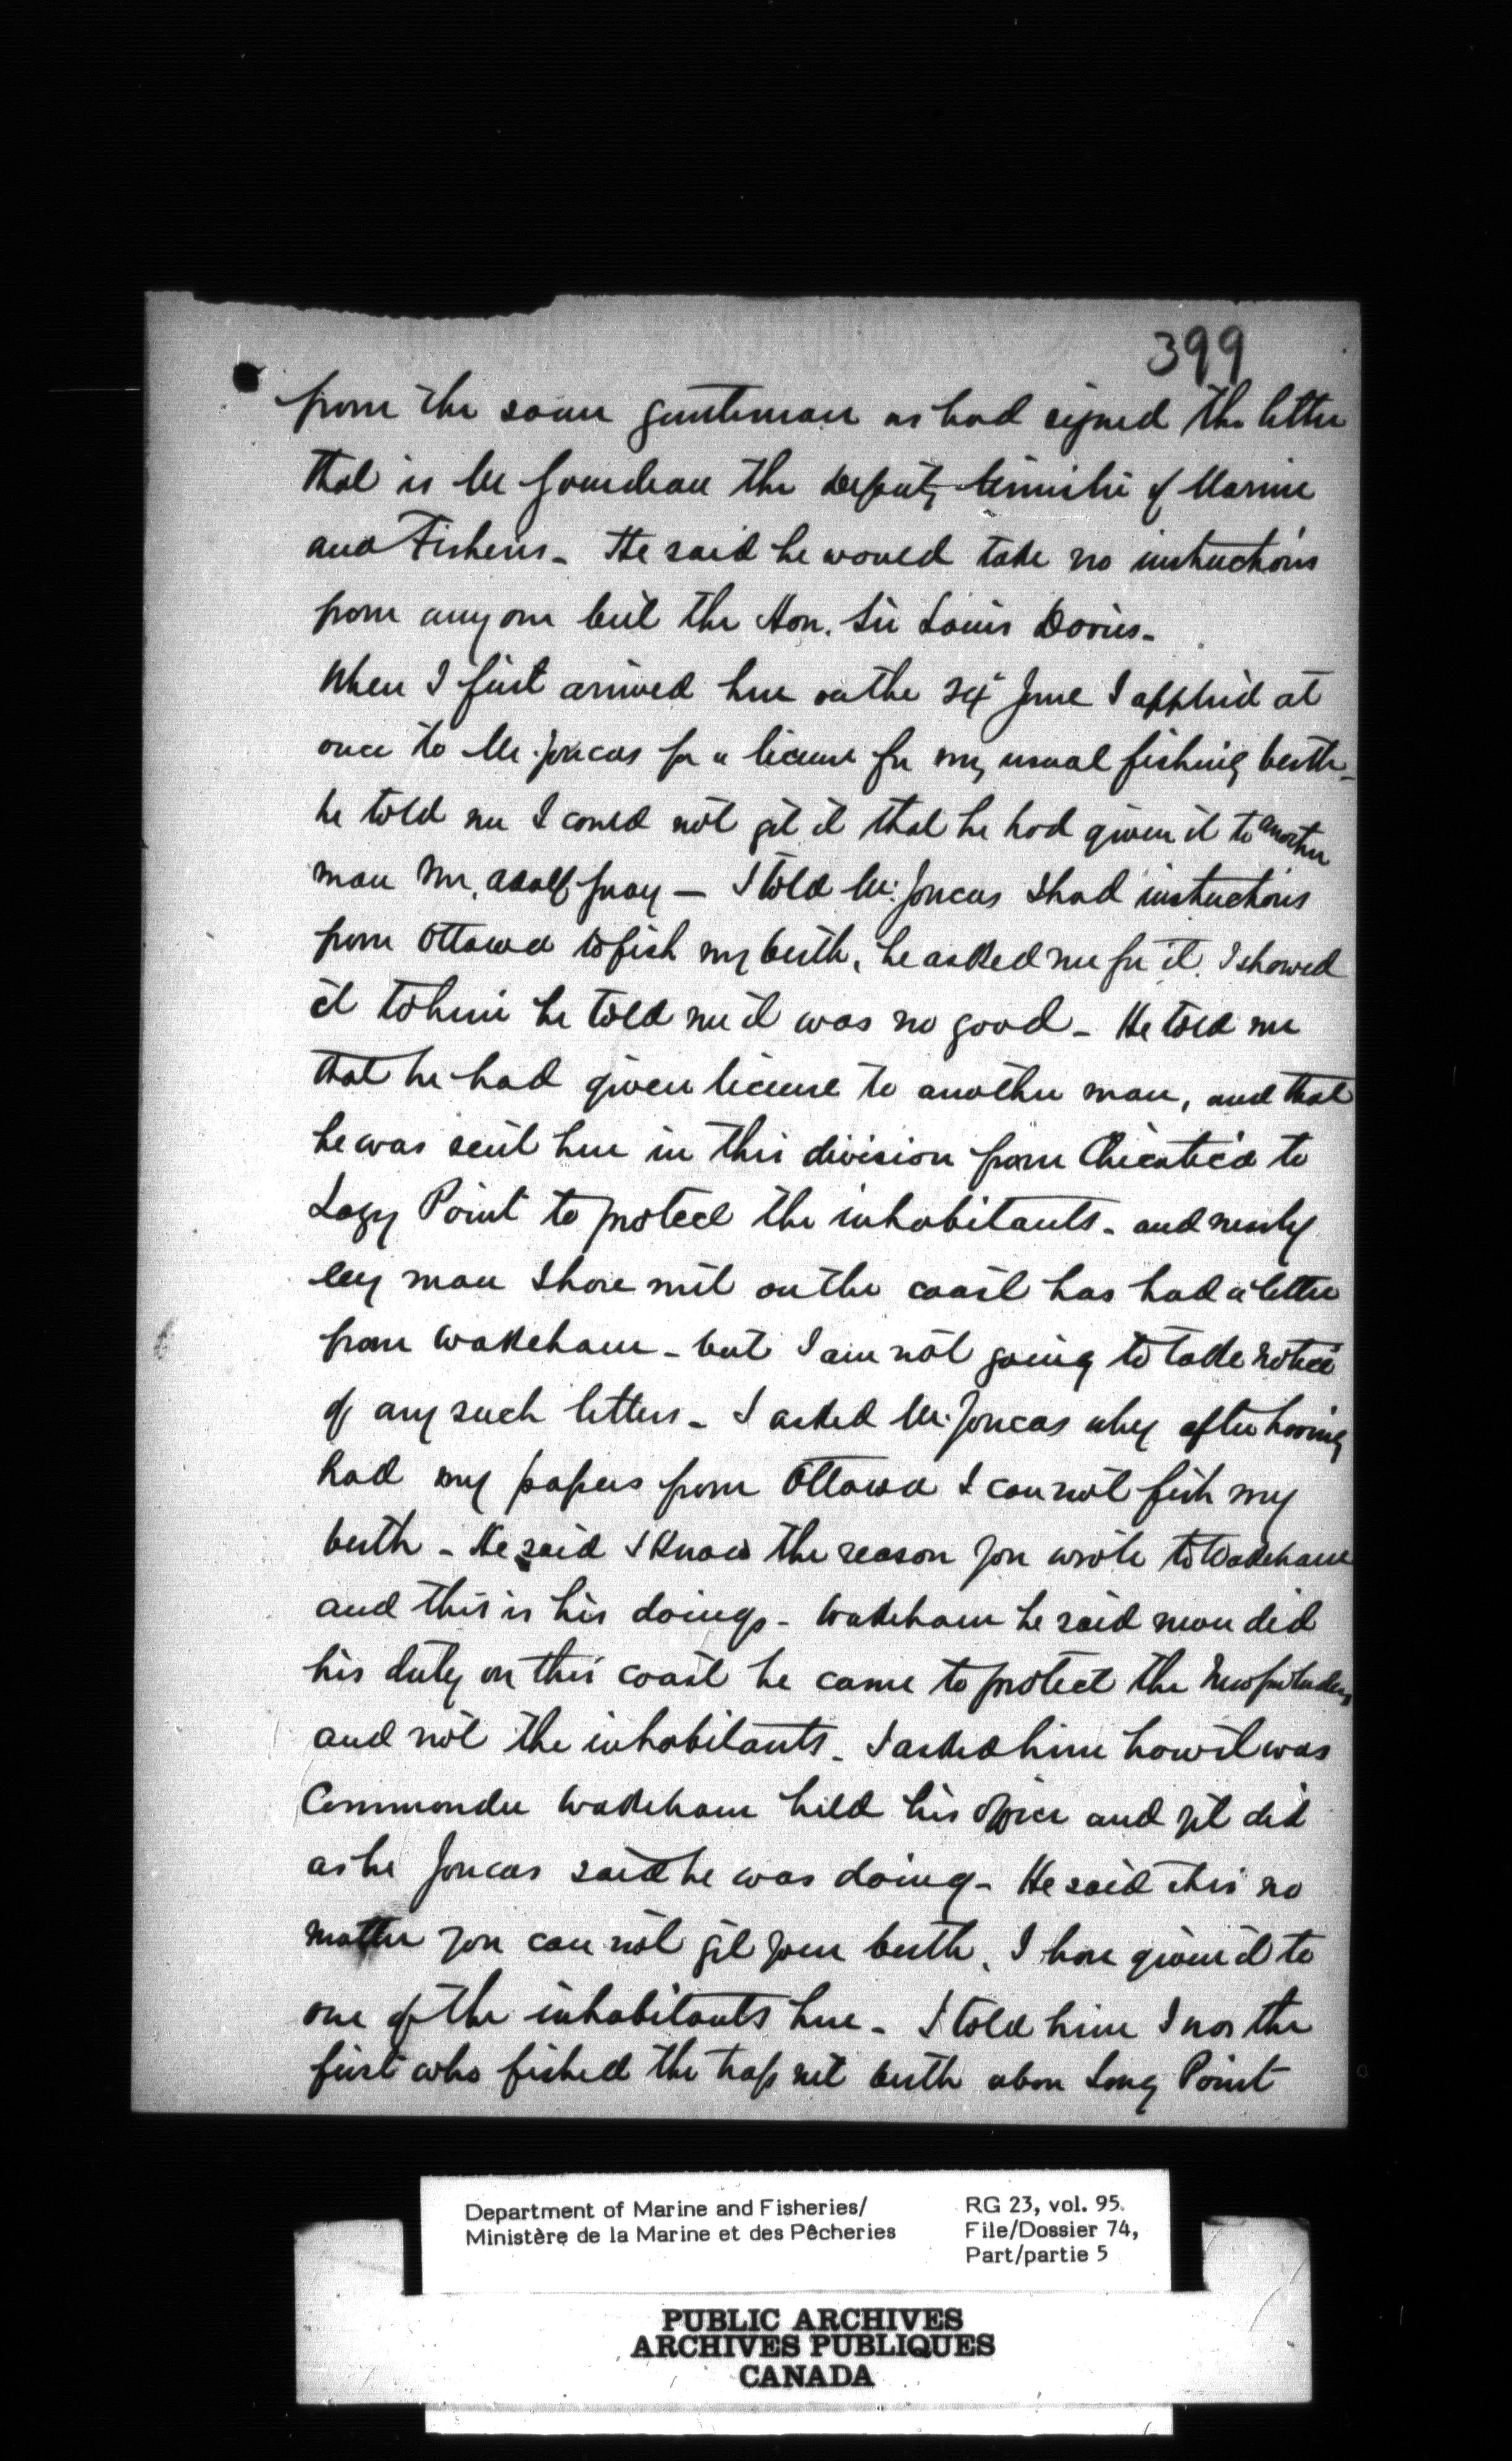 399
from the same gentleman as had signed the letter
that is Mr Gourdeau the Deputy Minister of Marine
and Fisheries - He said he would take no instructions
from any one but the Hon. Sir Louis Davies -
When I first arrived here on the June I applied at
once to Mr. Joncas for a license for my usual fishing berth -
he told me I could not get it that he had given it to another
man Mr. - I told Mr. Joncas I had instructions
from Ottawa to fish my berth, he asked me for it. I showed
it to him he told me it was no good - He told me
that he had given license to another man, and that
he was sent here in this division from Checatica to
Lazy Point to protect the inhabitants - and nearly
every man I have met on the coast has had a letter
from Wakeham - but I am not going to take notice
of any such letters - I asked Mr. Joncas why after having
had my papers from Ottawa I can not fish my
berth - He said I know the reason you wrote to Wakeham
and this is his doings - Wakeham he said never did
his duty on this coast he came to protect the Newfoundlanders
and not the inhabitants - I asked him how it was
Commander Wakeham held his office and yet did
as he Joncas said he was doing - He said this no
matter you can not get your berth, I have given it to
one of the inhabitants here - I told him I was the
first who fished the trap net berth Long Point
Department of Marine and Fisheries/
Ministère de la Marine et des Pêcheries
RG 23, vol. 95.
File/Dossier 74,
Part/partie 5
PUBLIC ARCHIVES
ARCHIVES PUBLIQUES
CANADA